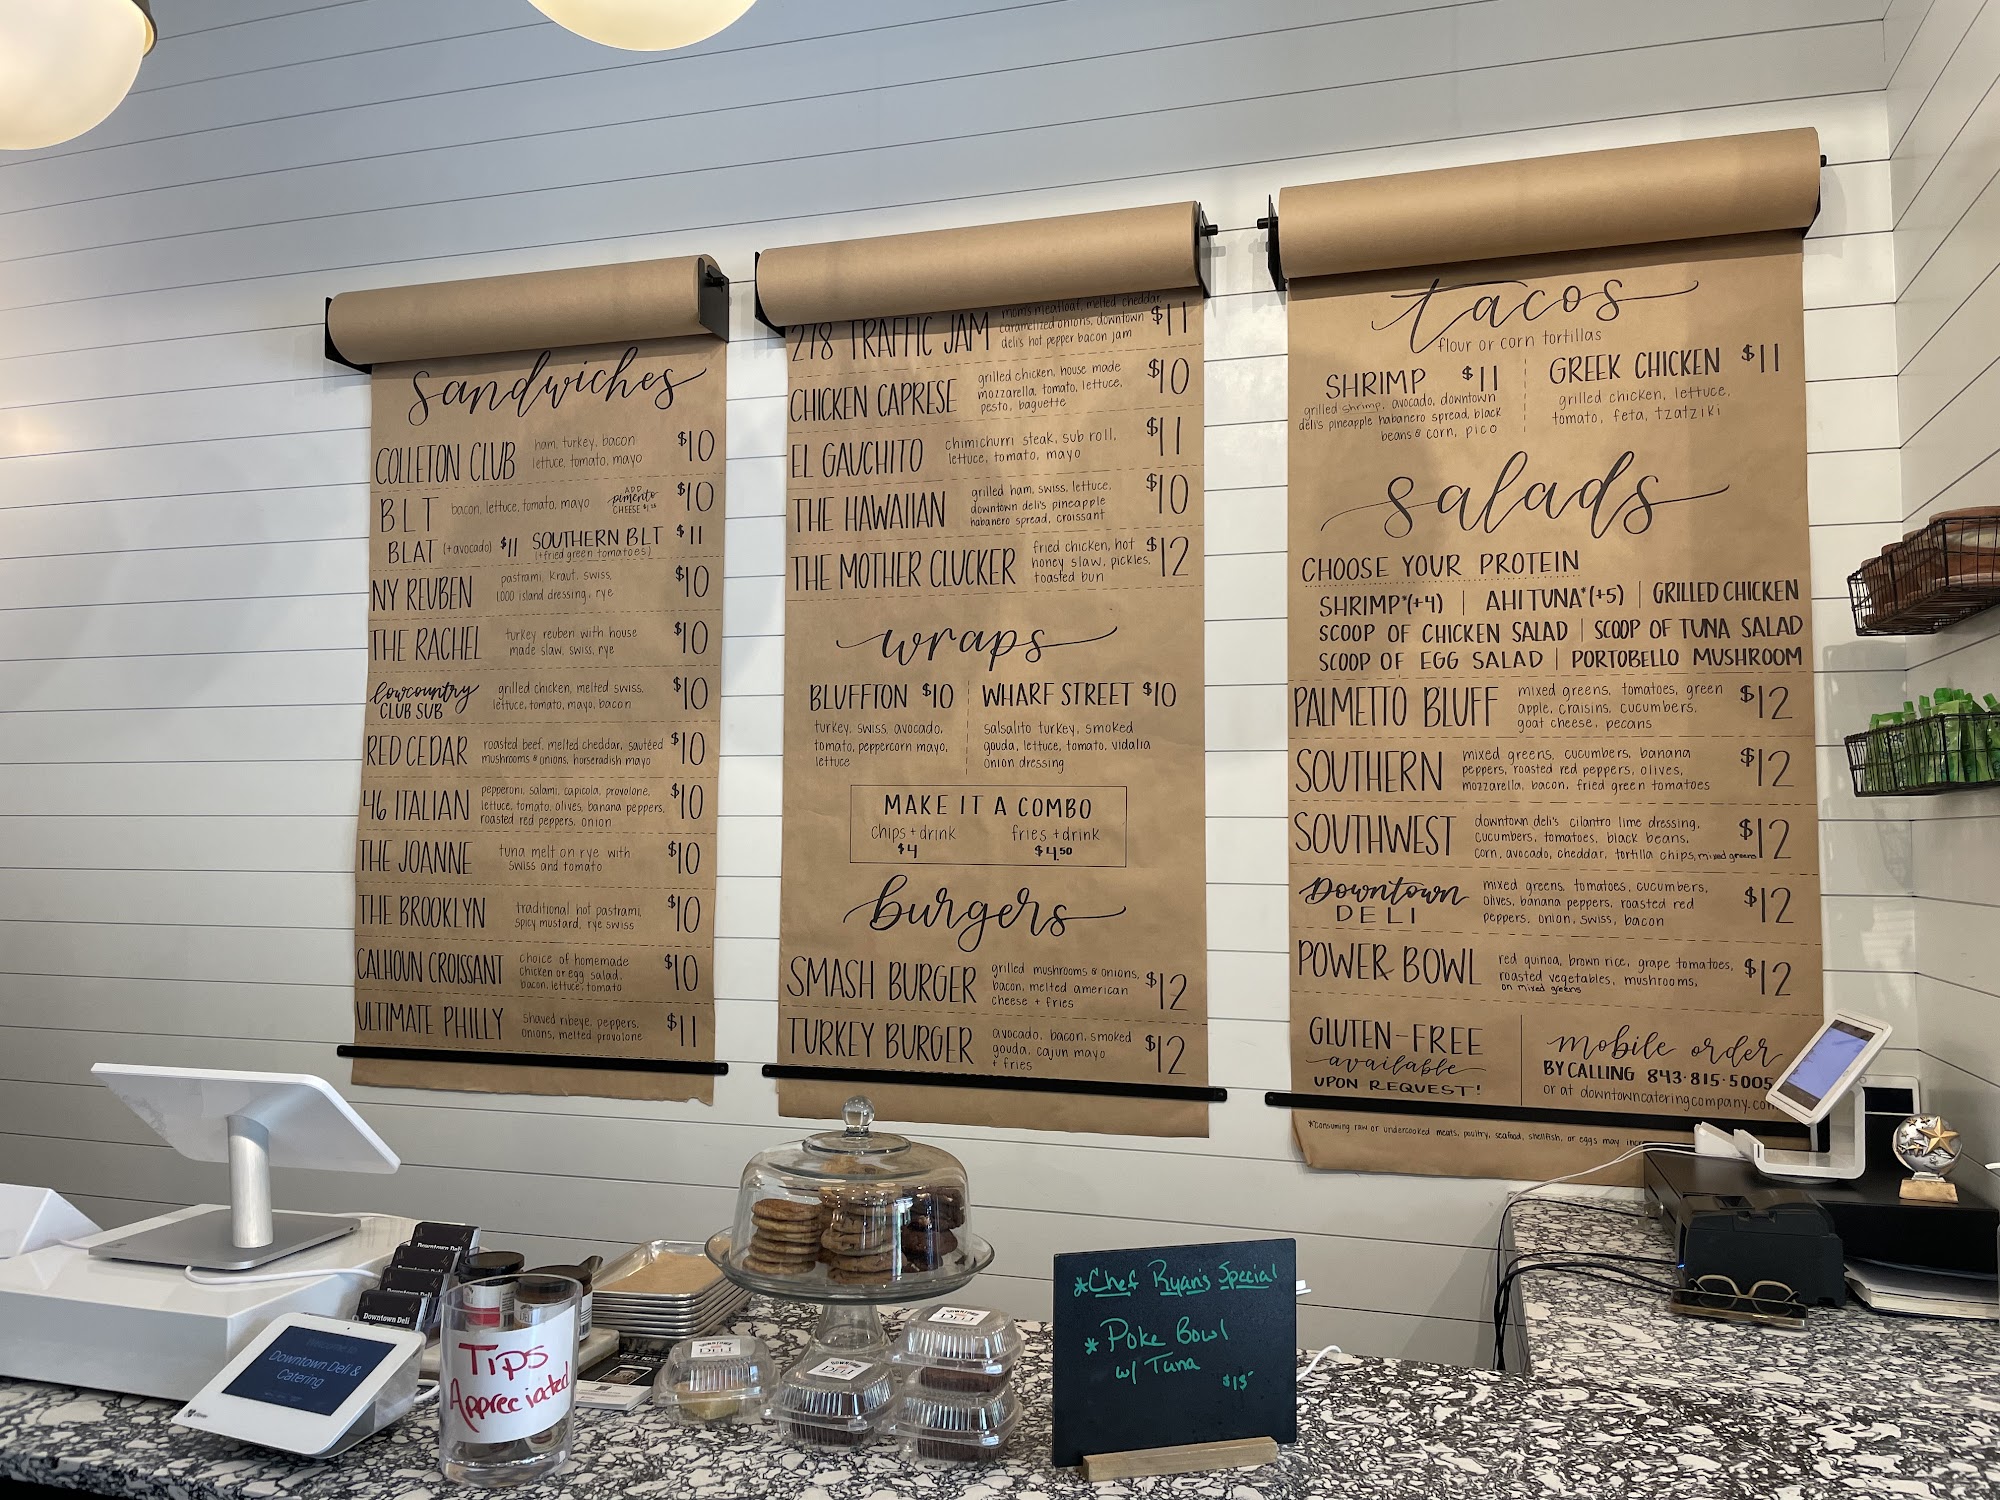 sandwiches
COLLETON CLUB ham, turkey, bacon $10
lettuce, tomato, mayo
BLT bacon, lettuce, tomato, mayo ADD pimento CHEESE $10
BLAT (+avocado) $11 SOUTHERN BLT $11
(+fried green tomatoes)
NY REUBEN pastrami, kraut, swiss, $10
1,000 island dressing, rye
THE RACHEL turkey reuben with house $10
made slaw, swiss, rye
lowcountry grilled chicken, melted swiss, $10
CLUB SUB lettuce, tomato, mayo, bacon
RED CEDAR roasted beef, melted cheddar, sautéed $10
mushrooms & onions, horseradish mayo
46 ITALIAN pepperoni, salami, capicola, provolone, $10
lettuce, tomato, olives, banana peppers,
roasted red peppers, onion
THE JOANNE tuna melt on rye with $10
swiss and tomato
THE BROOKLYN traditional hot pastrami, $10
spicy mustard, rye swiss
CALHOUN CROISSANT choice of homemade $10
chicken or egg salad,
bacon, lettuce, tomato
ULTIMATE PHILLY shaved ribeye, peppers, $11
onions, melted provolone
278 TRAFFIC JAM mom's meatloaf, melted cheddar, $11
caramelized onions, downtown
deli's hot pepper bacon jam
CHICKEN CAPRESE grilled chicken, house made $10
mozzarella, tomato, lettuce,
pesto, baguette
EL GAUCHITO chimichurri steak, sub roll, $11
lettuce, tomato, mayo
THE HAWAIIAN grilled ham, swiss, lettuce, $10
downtown deli's pineapple
habanero spread, croissant
THE MOTHER CLUCKER fried chicken, hot $12
honey slaw, pickles,
toasted bun
wraps
BLUFFTON $10
turkey, swiss, avocado,
tomato, peppercorn mayo,
lettuce
WHARF STREET $10
salsalito turkey, smoked
gouda, lettuce, tomato, vidalia
onion dressing
MAKE IT A COMBO
chips + drink fries + drink
$4 $4.50
burgers
SMASH BURGER grilled mushrooms & onions, $12
bacon, melted american
cheese + fries
TURKEY BURGER avocado, bacon, smoked $12
gouda, cajun mayo
+ fries
tacos
flour or corn tortillas
SHRIMP $11
grilled shrimp, avocado, downtown
deli's pineapple habanero spread, black
beans & corn, pico
GREEK CHICKEN $11
grilled chicken, lettuce,
tomato, feta, tzatziki
salads
CHOOSE YOUR PROTEIN
SHRIMP*(+4) | AHI TUNA*(+5) | GRILLED CHICKEN
SCOOP OF CHICKEN SALAD | SCOOP OF TUNA SALAD
SCOOP OF EGG SALAD | PORTOBELLO MUSHROOM
PALMETTO BLUFF mixed greens, tomatoes, green $12
apple, craisins, cucumbers,
goat cheese, pecans
SOUTHERN mixed greens, cucumbers, banana $12
peppers, roasted red peppers, olives,
mozzarella, bacon, fried green tomatoes
SOUTHWEST downtown deli's cilantro lime dressing, $12
cucumbers, tomatoes, black beans,
corn, avocado, cheddar, tortilla chips, mixed greens
Downtown mixed greens, tomatoes, cucumbers, $12
DELI olives, banana peppers, roasted red
peppers, onion, swiss, bacon
POWER BOWL red quinoa, brown rice, grape tomatoes, $12
roasted vegetables, mushrooms,
on mixed greens
GLUTEN-FREE
available
UPON REQUEST!
mobile order
BY CALLING 843·815·5005
or at downtowncateringcompany.com
*Consuming raw or undercooked meats, poultry, seafood, shellfish, or eggs may
Downtown Deli
Downtown Deli
Downtown Deli &
Catering
Tips
Appreciated
DELI
*Chef Ryan's Special
*Poke Bowl
w/ Tuna